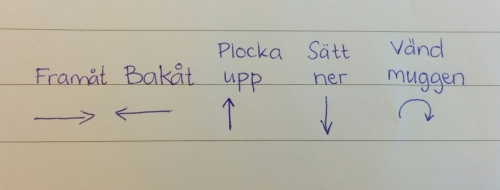 Framåt
Bakåt
Plocka
upp
Sätt
ner
Vänd
muggen